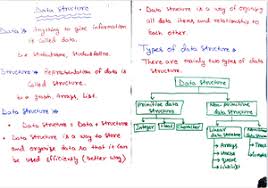 Data Structure
Data → Anything to give information
is called data.
Ex. StudentName, Student Rollno.
Structure → Representation of data is
called Structure.
Ex. Graph, Arrays, List.
Data Structure →
• Data Structure = Data + Structure
• Data Structure is a way to store
and organize data so that it can
be used efficiently (better way)
• Data Structure is a way of organising
all data items and relationship to
each other.
Types of Data Structure →
• There are mainly two types of data
Structure.
Data Structure
Primitive data
Structure
Non-primitive data
Structure
Integer
Float
Character
Linear
Data Structure
Non-Linear
Data Structure
→ Arrays
→ Linked list
→ Stack
→ Queue
→ Tree
→ Graph